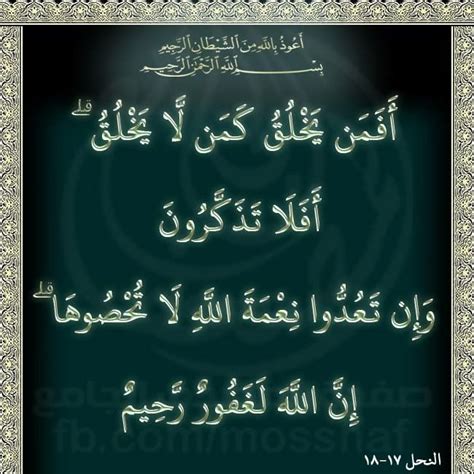 أَعُوذُ بِاللَّهِ مِنَ الشَّيْطَانِ الرَّجِيمِ
بِسْمِ اللَّهِ الرَّحْمَٰنِ الرَّحِيمِ
أَفَمَن يَخْلُقُ كَمَن لَّا يَخْلُقُ ۗ
أَفَلَا تَذَكَّرُونَ
وَإِن تَعُدُّوا نِعْمَةَ اللَّهِ لَا تُحْصُوهَا ۗ
إِنَّ اللَّهَ لَغَفُورٌ رَّحِيمٌ
الجامع
fb.com/mosshaf
النحل ١٧-١٨